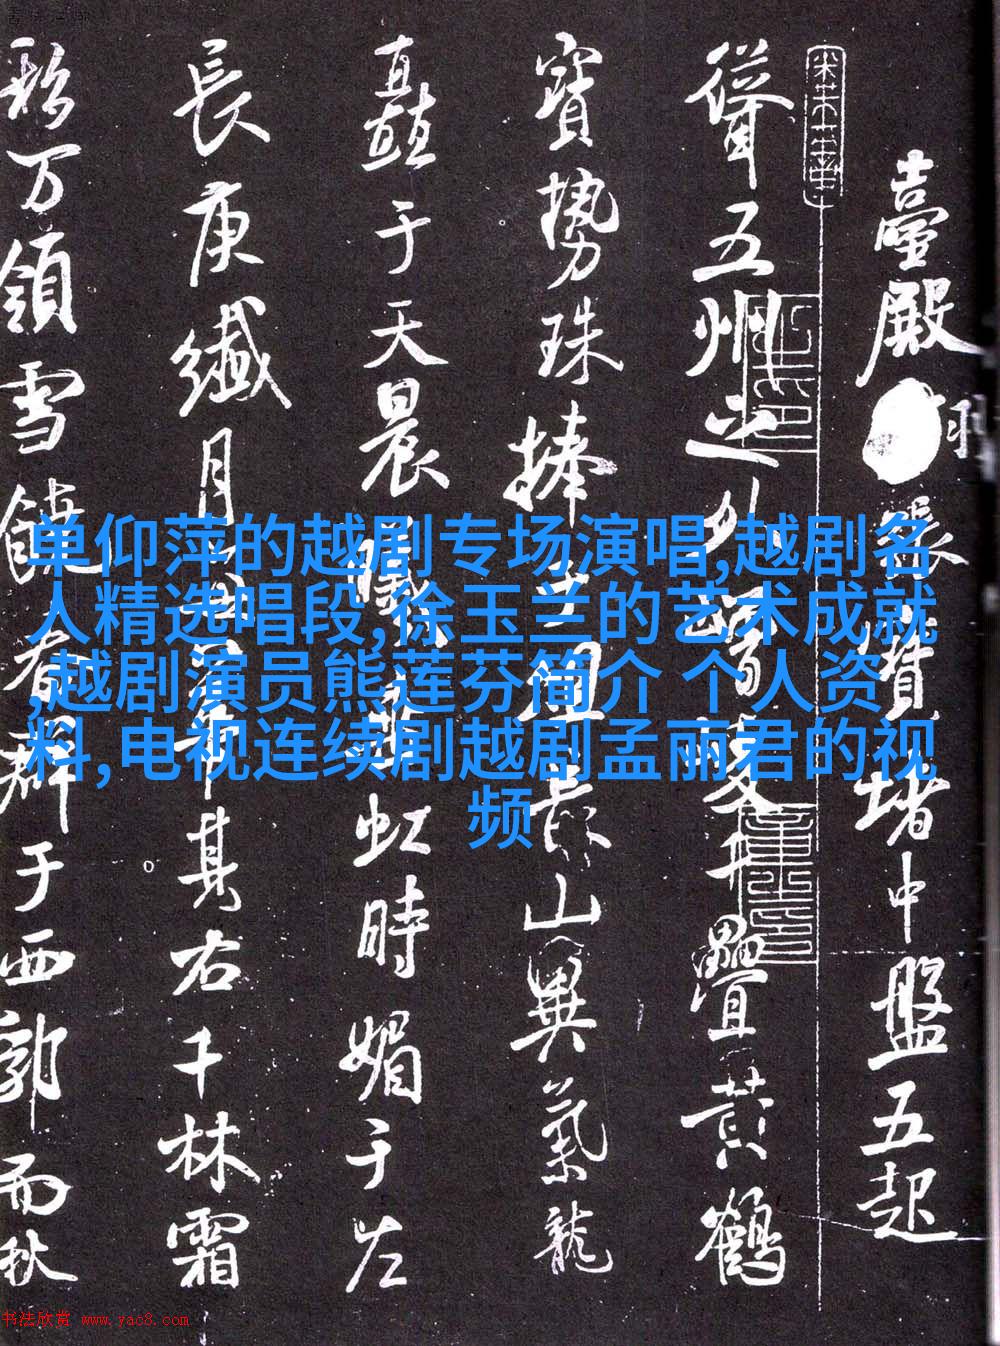 单仰萍的越剧专场演唱,越剧名
人精选唱段,徐玉兰的艺术成就
,越剧演员熊莲芬简介 个人资
料,电视连续剧越剧孟丽君的视
频
臺殿張寶堵中盤五起
聳五州之外疊黄鶴
寶勢珠捧山異氣龍
矗于天晨曦虹時媚于左
長庚纖月其右千林霜
彩万領雪饒春群于西郭而秋
书法欣赏 www.yac8.com